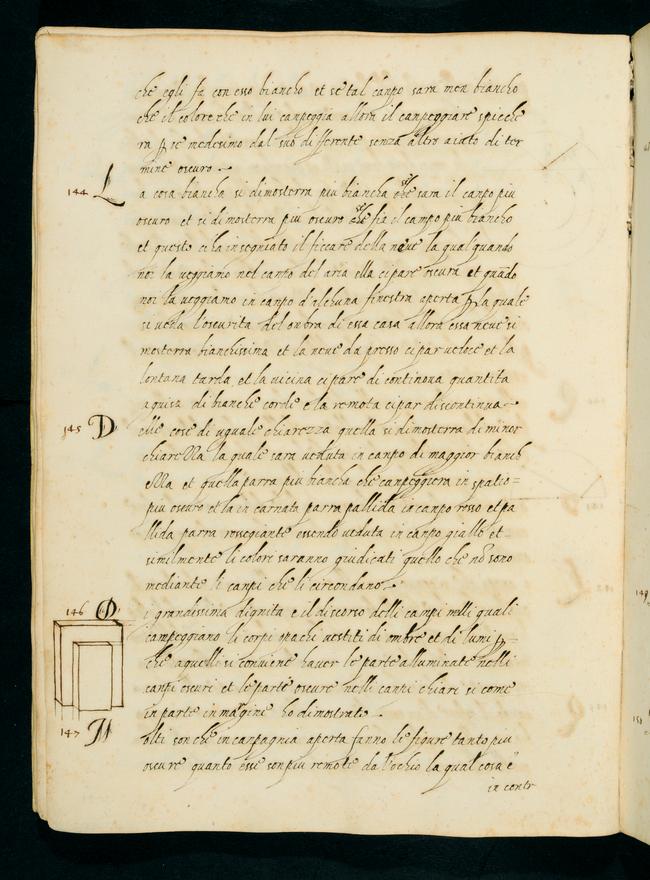 che egli fa con esso biancho et se tal canpo sara men biancho
che il colore che in lui canpeggia allora il canpeggiare spicche
ra p se medesimo dal suo differente senza altro aiuto di ter
mine oscuro
144 L
a cosa biancha si dimosterra piu biancha che sel sara il canpo piu
oscuro et si dimosterra piu oscuro che sel fia il campo piu biancho
et questo ci ha insegniato il fioccare della neve la qual quando
noi la veggiamo nel canpo del aria ella ci pare oscura et quãdo
noi la veggiamo in canpo d'alchuna finestra aperta p la quale
si veda l'oscurita del onbra di essa casa allora essa neve si
mosterra bianchissima et la neve da presso ci par veloce et la
lontana tarda et la vicina ci pare di continova quantita
a guisa di bianche corde e la remota ci par discontinua
145 D
elle cose di uguale chiarezza quella si dimosterra di minor
chiarezza la quale sara veduta in canpo di maggior bianch
ezza et quella parra piu biancha che canpeggiera in spatio
piu oscuro et la in carnata parra pallida in canpo rosso et pa
llida parra rosseggiante essendo veduta in canpo giallo et
similmente li colori saranno giudicati quello che nõ sono
mediante li canpi che li circondano
146 D
i grandissima dignita e il discorso delli campi nelli quali
campeggiano li corpi opachi vestiti di ombre et di lumi p
che a quelli si conviene haver le parte alluminate nelli
canpi oscuri et le parte oscure nelli canpi chiari si come
in parte in margine ho dimostrato
147 M
olti son che in canpagnia aperta fanno le figure tanto piu
oscure quanto esse son piu remote da l'ochio la qual cosa e
in contr